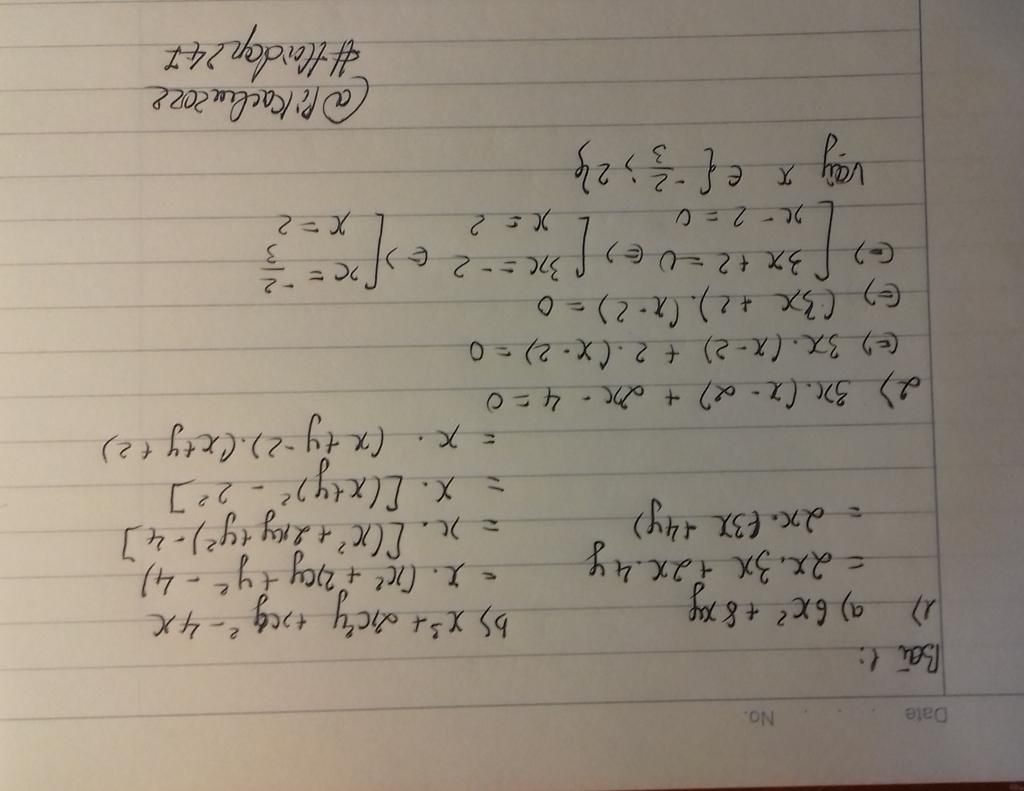 Date . . . No.
Bài 1:
1) a) 6x² + 8xy
= 2x.3x + 2x.4y
= 2x.(3x + 4y)
b) x³ + 2x²y + xy² - 4x
= x.(x² + 2xy + y² - 4)
= x.[(x² + 2xy + y²) - 4]
= x.[(x+y)² - 2²]
= x.(x+y-2).(x+y+2)
2) 3x.(x-2) + 2x - 4 = 0
(=) 3x.(x-2) + 2.(x-2) = 0
(=) (3x+2).(x-2) = 0
(=) [3x+2=0 (=) [3x=-2 (=) [x=-2/3
x-2=0 x=2 x=2
Vậy x ∈ {-2/3; 2}
@Pikachu2022
#Hoidap247